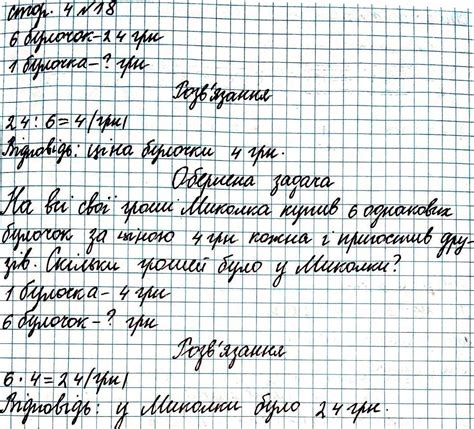 стор. 4 №18
6 булочок-24 грн
1 булочка-? грн
Розв'язання
24:6=4(грн)
Відповідь: ціна булочки 4 грн.
Обернена задача
На всі свої гроші Миколка купив 6 однакових
булочок за ціною 4 грн кожна і пригостив дру-
зів. Скільки грошей було у Миколки?
1 булочка-4 грн
6 булочок-? грн
Розв'язання
6·4=24(грн)
Відповідь: у Миколки було 24 грн.